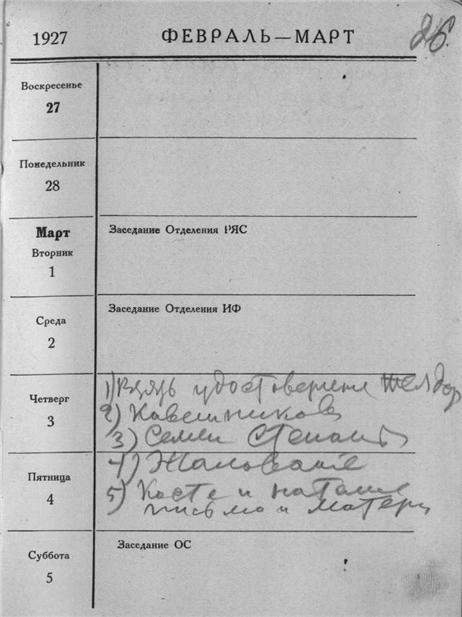 1927 ФЕВРАЛЬ—МАРТ 26.
Воскресенье
27
Понедельник
28
Март
Вторник
1
Заседание Отделения РЯС
Среда
2
Заседание Отделения ИФ
Четверг
3
1) Взять удостоверение
2) Кавешников
3) Семен Степаныч
Пятница
4
4) Жалование
5) Косте и Наташе
письмо и матери
Суббота
5
Заседание ОС